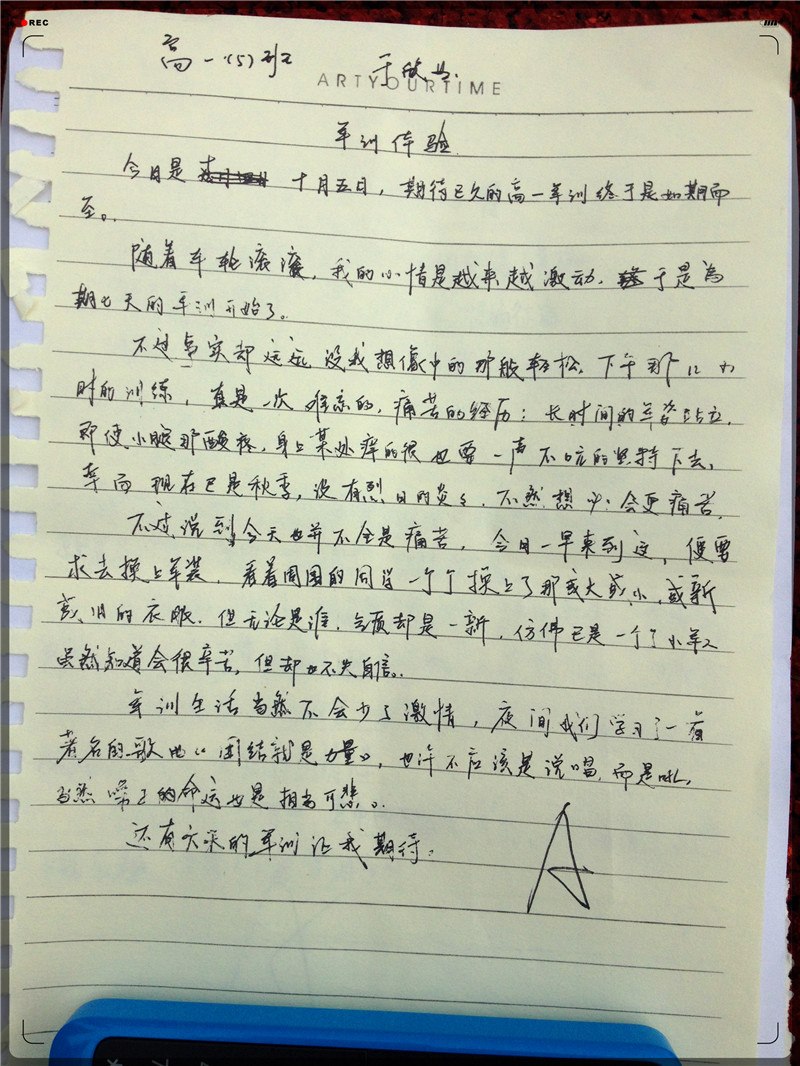 REC
高一(5)班 于欣
ARTYOURTIME
军训体验
今日是 十月五日，期待已久的高一军训终于是如期而
至。
随着车轮滚滚，我的心情是越来越激动，于是为
期七天的军训开始了。
不过事实却远远没我想像中的那般轻松，下午那几小
时的训练，真是一次难忘的，痛苦的经历：长时间的军姿站立，
即使小腿那酸疼，身上某处痒的很也要一声不吭的坚持下去，
幸而现在已是秋季，没有烈日的炎炎，不然想必会更痛苦，
不过说到今天也并不全是痛苦，今日一早来到这，便要
求去换上军装，看着周围的同学一个个换上了那或大或小，或新
或旧的衣服，但无论是谁，气质却是一新，仿佛已是一个个小军人
虽然知道会很辛苦，但却也不失自信。
军训生活当然不会少了激情，夜间我们学习了一首
著名的歌曲《团结就是力量》，也许不应该是说唱，而是吼，
当然嗓子的命运也是相当可悲。
还有六天的军训让我期待。
A